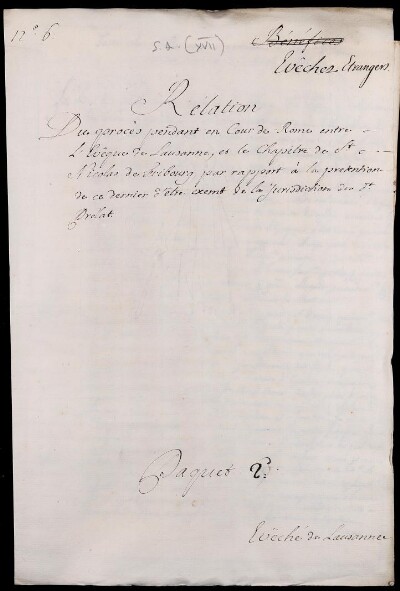 n.º 6
s.d. (XVII)
Bénéfices
Evêchez Etrangers.
Rélation
Du procès pendant en Cour de Rome entre
L'Evêque de Lausanne, et le Chapitre de St
Nicolas de Fribourg par rapport à la prétention
de ce dernier d'être exemt de la jurisdiction du dt
Prélat
Paquet 2.
Evêché de Lausanne